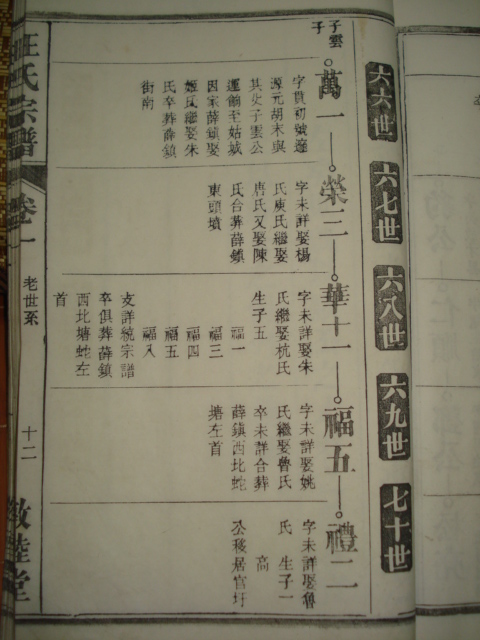 六六世
六七世
六八世
六九世
七十世
子雲
子
萬一
字貫初號達
源元胡末與
其父子雲公
運餉至姑孰
因家薛鎮娶
姬氏繼娶朱
氏卒葬薛鎮
街南
榮三
字未詳娶楊
氏庾氏繼娶
唐氏又娶陳
氏合葬薛鎮
東頭墳
華十一
字未詳娶朱
氏繼娶杭氏
生子五
福一
福三
福四
福五
福八
支詳統宗譜
卒俱葬薛鎮
西北塘蛇左
首
福五
字未詳娶姚
氏繼娶魯氏
卒未詳合葬
薛鎮西北蛇
塘左首
禮二
字未詳娶魯
氏 生子一
高
公移居官圩
汪氏宗譜
卷一
老世系
十二
敦睦堂